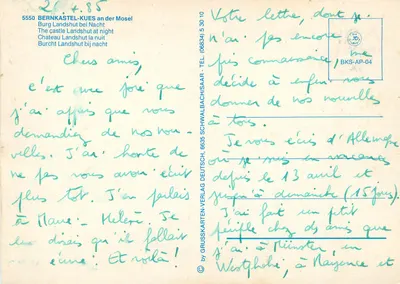 20.4.85
5550 BERNKASTEL-KUES an der Mosel
Burg Landshut bei Nacht
The castle Landshut at night
Chateau Landshut la nuit
Burcht Landshut bij nacht
Chers amis,
C'est une fois que
j'ai appris que vous
demandiez de nos nou-
velles. J'ai honte de
ne pas vous avoir écrit
plus tôt. J'en parlais
à Marie-Hélène. Je
lui disais qu'il fallait
écrire. Et voilà!
© by GRUSSKARTEN-VERLAG DEUTSCH, 6635 SCHWALBACH/SAAR · TEL. (06834) 5 30 10
BKS-AP-64
Votre lettre, dont je
n'ai pas encore
pris connaissance, me
décide à enfin vous
donner de nos nouvelles
à tous.
Je vous écris d'Allemagne
où je suis en vacances
depuis le 13 avril et
jusqu'à dimanche (15 jours).
J'ai fait un petit
périple chez des amis que
j'ai à Münster, en
Westphalie, à Mayence et